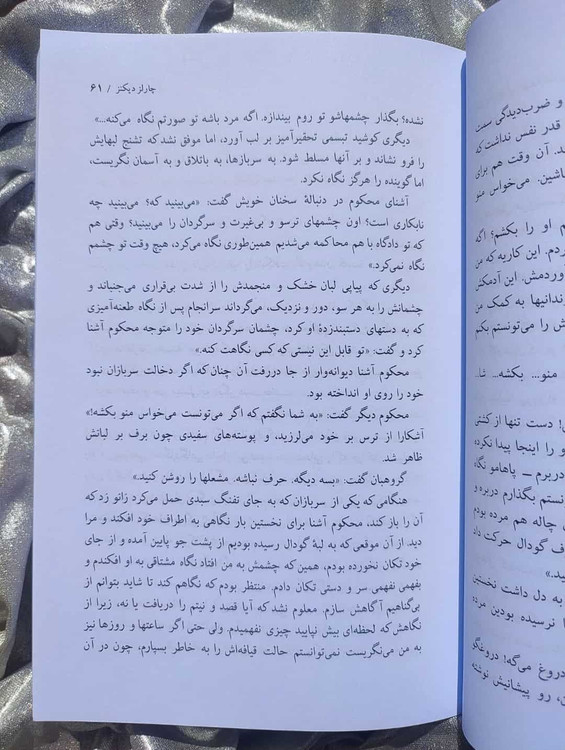 چارلز دیکنز / ۶۱
نشده؟ بگذار چشمهاشو تو روم بیندازه. اگه مرد باشه تو صورتم نگاه می‌کنه...»
دیگری کوشید تبسمی تحقیرآمیز بر لب آورد، اما موفق نشد که تشنج لبهایش
را فرو نشاند و بر آنها مسلط شود. به سربازها، به باتلاق و به آسمان نگریست،
اما گوینده را هرگز نگاه نکرد.
آشنای محکوم در دنبالهٔ سخنان خویش گفت: «می‌بینید که؟ می‌بینید چه
نابکاری است؟ اون چشمهای ترسو و بی‌غیرت و سرگردان را می‌بینید؟ وقتی هم
که تو دادگاه با هم محاکمه می‌شدیم همین‌طوری نگاه می‌کرد، هیچ وقت تو چشمم
نگاه نمی‌کرد.»
دیگری که پیاپی لبان خشک و منجمدش را از شدت بی‌قراری می‌جنباند و
چشمانش را به هر سو، دور و نزدیک، می‌گرداند سرانجام پس از نگاه طعنه‌آمیزی
که به دستهای دستبندزدهٔ او کرد، چشمان سرگردان خود را متوجه محکوم آشنا
کرد و گفت: «تو قابل این نیستی که کسی نگاهت کنه.»
محکوم آشنا دیوانه‌وار از جا دررفت آن چنان که اگر دخالت سربازان نبود
خود را روی او انداخته بود.
محکوم دیگر گفت: «به شما نگفتم که اگر می‌تونست می‌خواس منو بکشه!»
آشکارا از ترس بر خود می‌لرزید، و پوسته‌های سفیدی چون برف بر لبانش
ظاهر شد.
گروهبان گفت: «بسه دیگه. حرف نباشه. مشعلها را روشن کنید.»
هنگامی که یکی از سربازان که به جای تفنگ سبدی حمل می‌کرد زانو زد که
آن را باز کند، محکوم آشنا برای نخستین بار نگاهی به اطراف خود افکند و مرا
دید. از آن موقعی که به لبهٔ گودال رسیده بودیم از پشت جو پایین آمده و از جای
خود تکان نخورده بودم، همین که چشمش به من افتاد نگاه مشتاقی به او افکندم و
بفهمی نفهمی سر و دستی تکان دادم. منتظر بودم که نگاهم کند تا شاید بتوانم از
بی‌گناهیم آگاهش سازم. معلوم نشد که آیا قصد و نیتم را دریافت یا نه، زیرا از
نگاهش که لحظه‌ای بیش نپایید چیزی نفهمیدم. ولی حتی اگر ساعتها و روزها نیز
به من می‌نگریست نمی‌توانستم حالت قیافه‌اش را به خاطر بسپارم، چون در آن
و ضرب‌دیدگی سخت
قدر نفس نداشت که
د. آن وقت هم برای
باشین. می‌خواس منو
م او را بکشم؟ اگه
ردم. این کاریه که من
وردمش. این آدمکش
زندانیها به کمک من
ش را می‌تونستم بکنم
منو... بکشه... شا..
! دست تنها از کشتی
و را اینجا پیدا نکرده
دربرم ــ پاهامو نگاه
نستم بگذارم دربره و
چاله هم مرده بودم
ف گودال حرکت داد
ید.»
به دل داشت نخستین
ا نرسیده بودین مرده
دروغ می‌گه! دروغگو
ن، رو پیشانیش نوشته